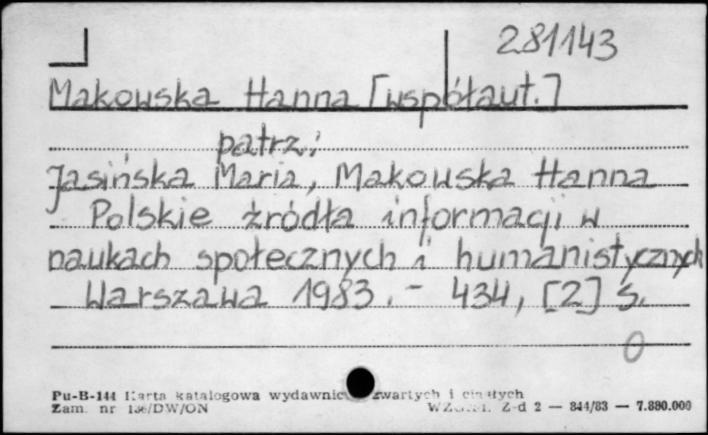 281143
Makowska Hanna [współaut.]
patrz:
Jasińska Maria, Makowska Hanna
Polskie źródła informacji w
naukach społecznych i humanistycznych
Warszawa 1983. - 434, [2] s.
0
Pu-B-144 Karta katalogowa wydawnic zwartych i ciągłych
Zam. nr 136/DW/ON Z-d 2 — 844/83 — 7.880.000